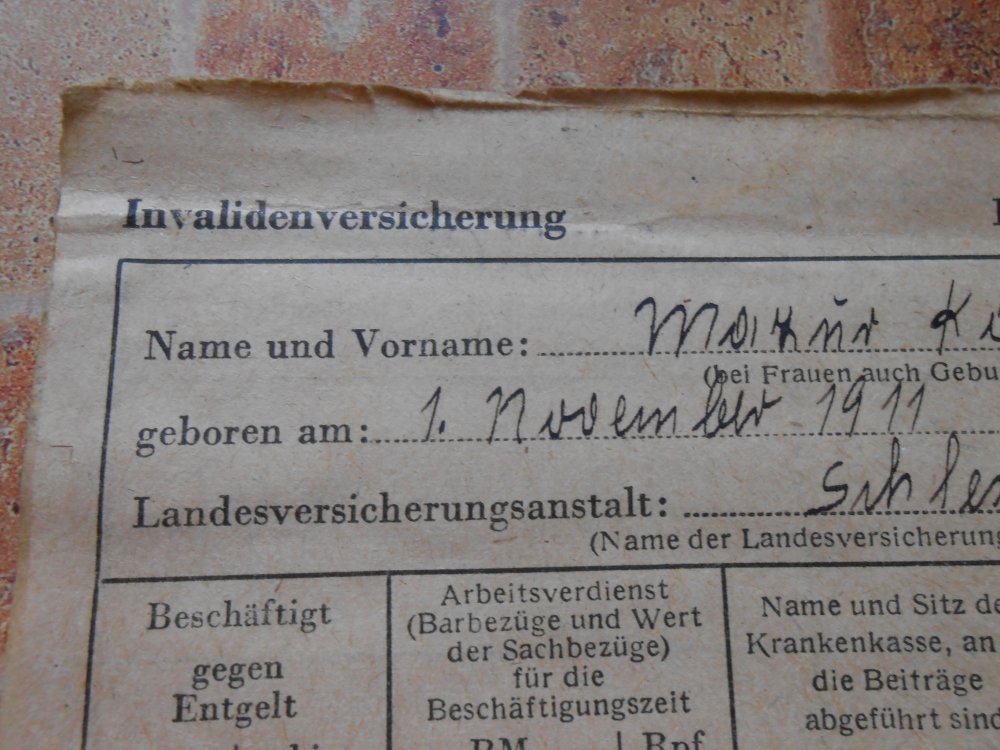 Invalidenversicherung
Name und Vorname: Mazur
(bei Frauen auch Gebu
geboren am: 1. November 1911
Landesversicherungsanstalt: Schles
(Name der Landesversicherung
Beschäftigt
gegen
Entgelt
Arbeitsverdienst
(Barbezüge und Wert
der Sachbezüge)
für die
Beschäftigungszeit
RM Rpf
Name und Sitz de
Krankenkasse, an
die Beiträge
abgeführt sind